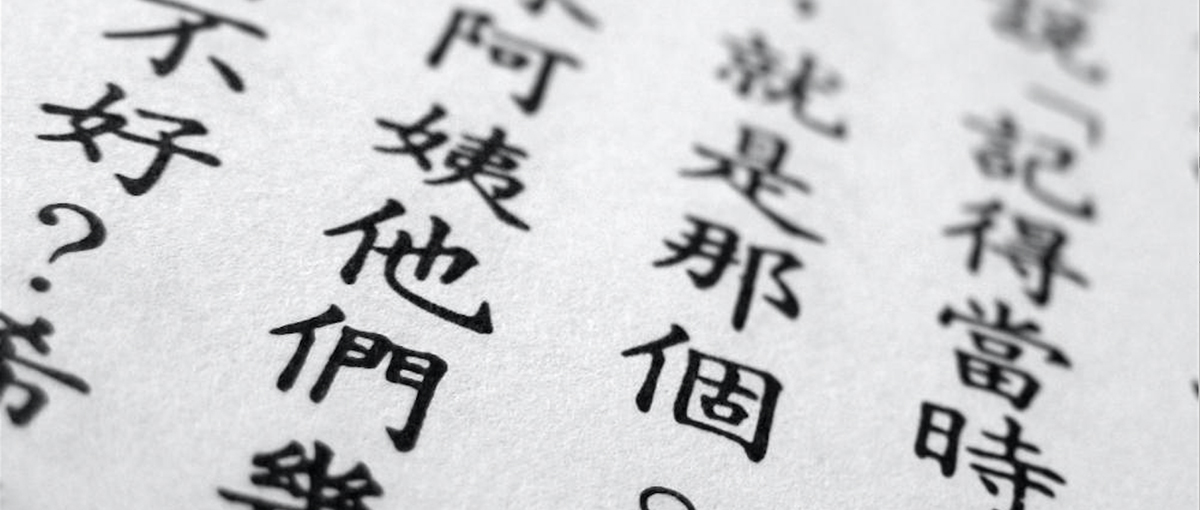 說「記得當時
就是那個。
阿姨他們幾
不好?希